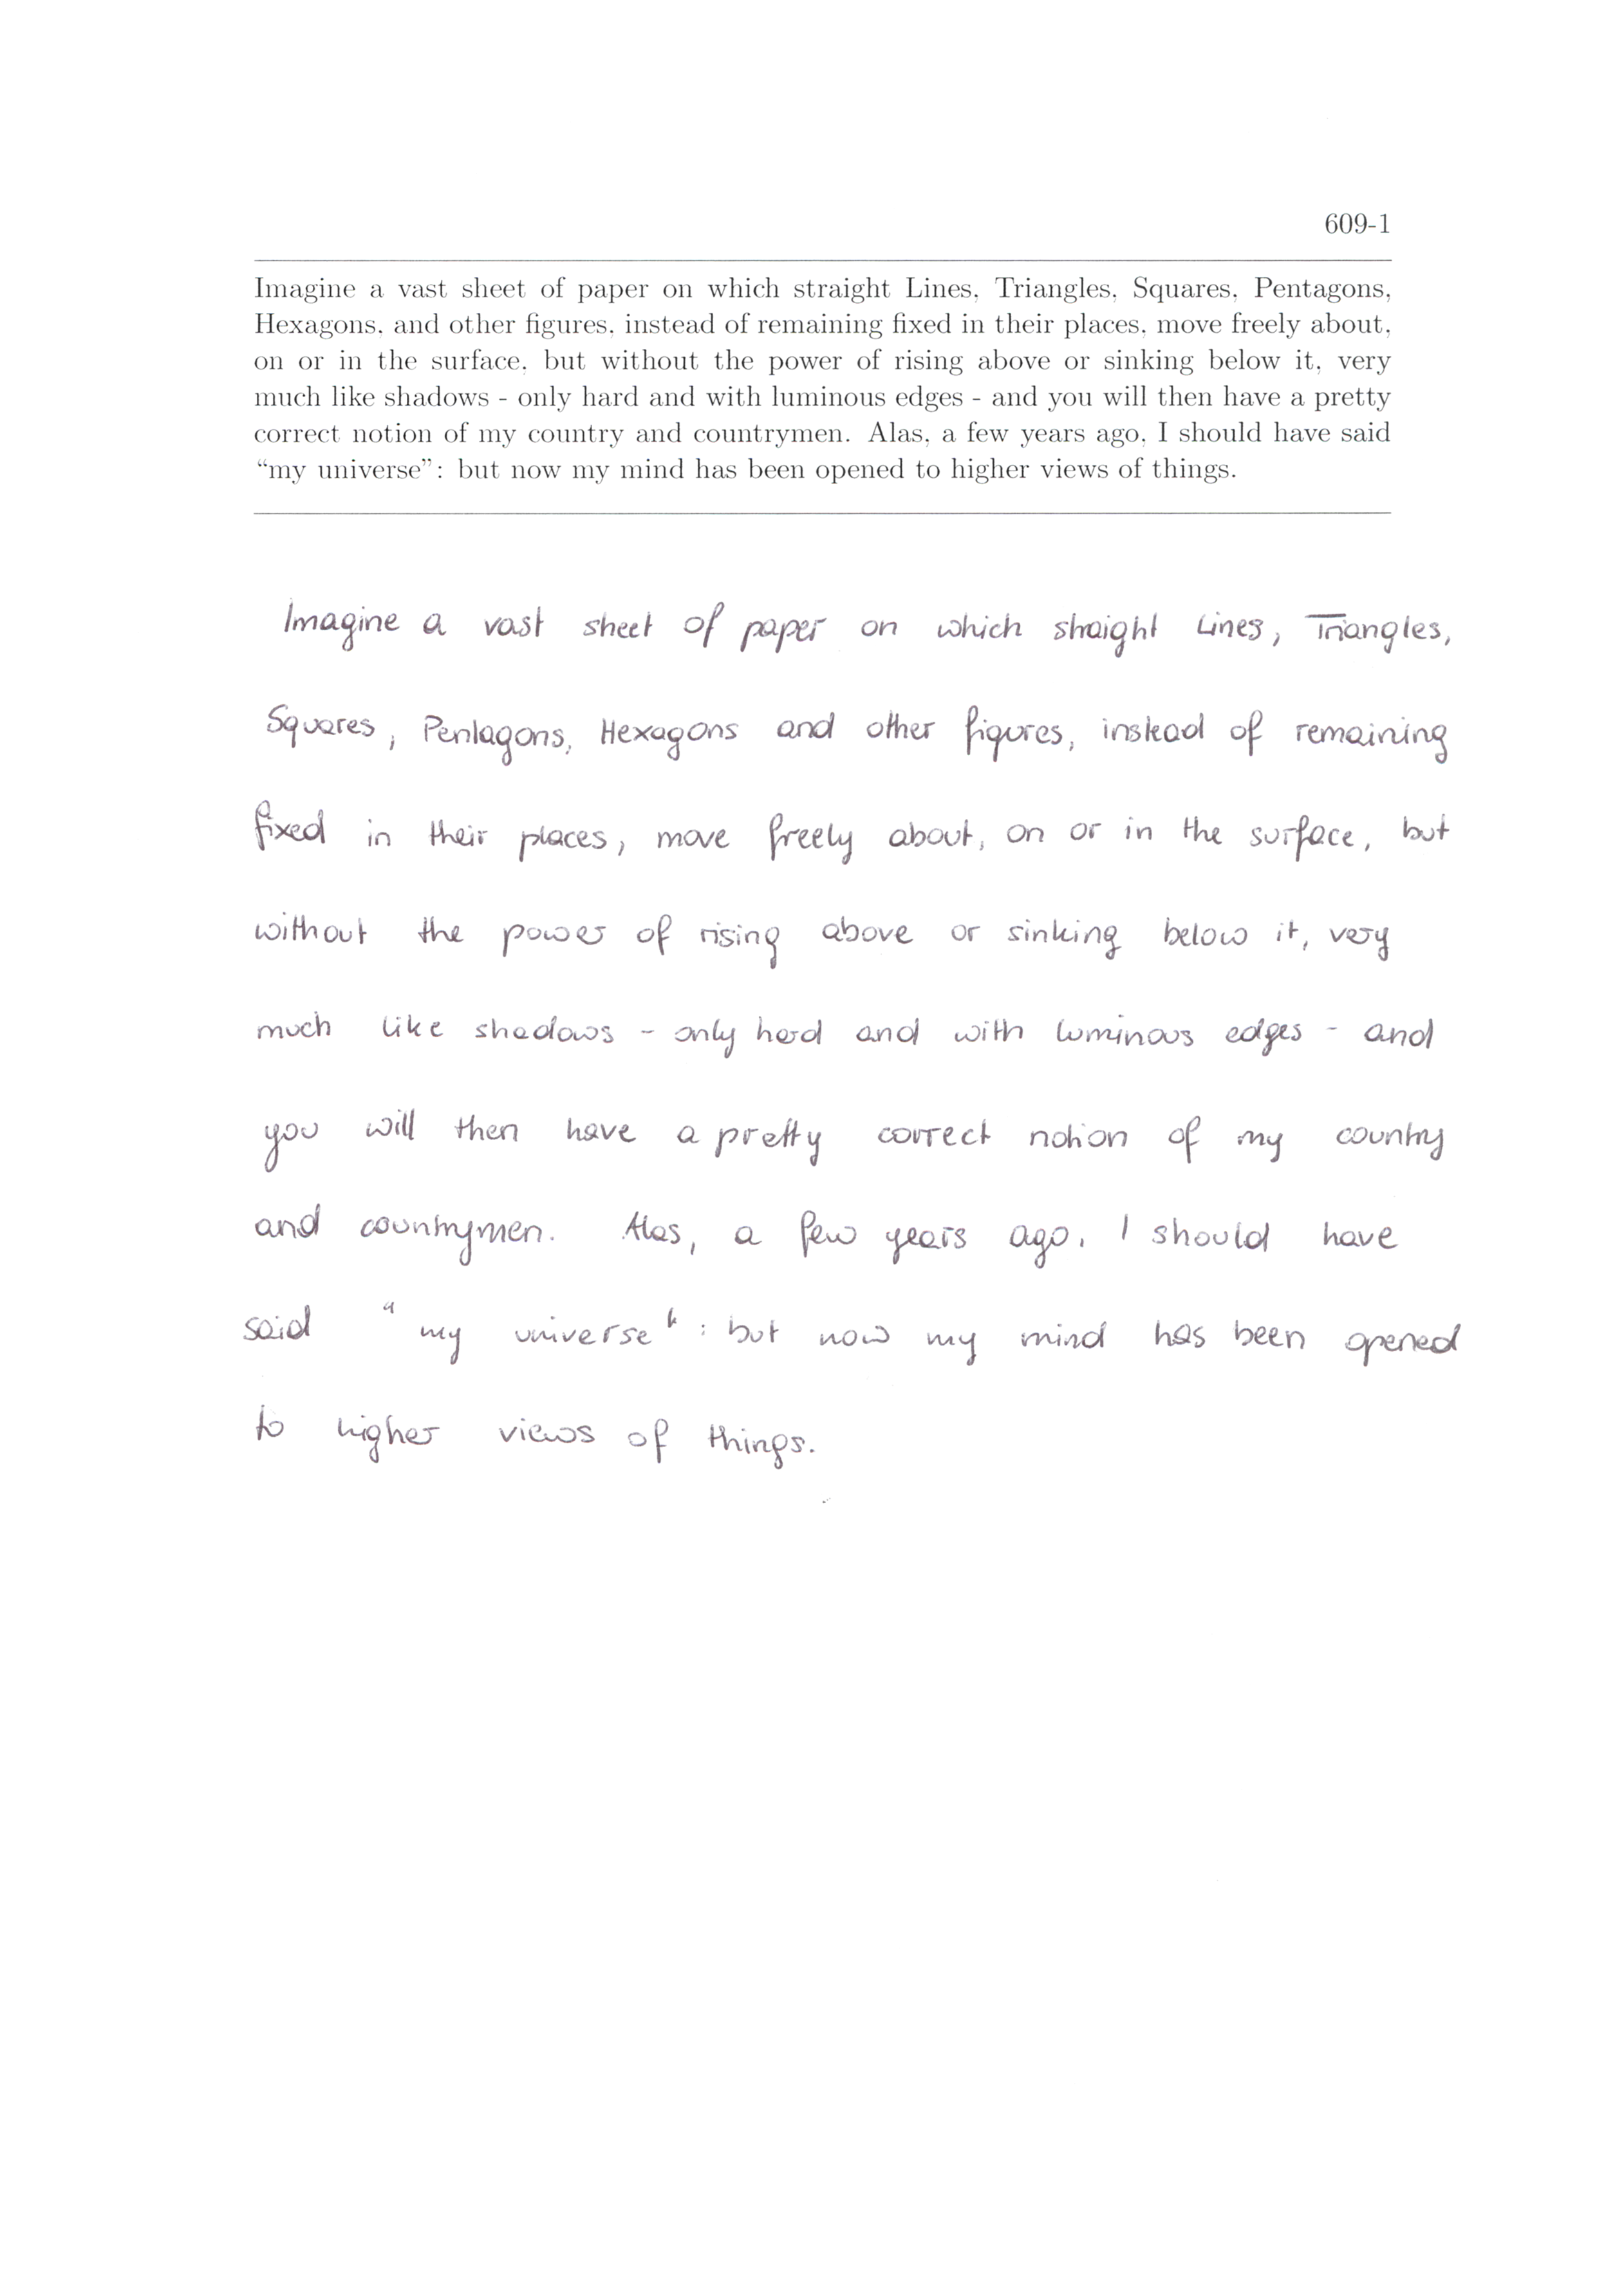 609-1
Imagine a vast sheet of paper on which straight Lines, Triangles, Squares, Pentagons,
Hexagons, and other figures, instead of remaining fixed in their places, move freely about,
on or in the surface, but without the power of rising above or sinking below it, very
much like shadows - only hard and with luminous edges - and you will then have a pretty
correct notion of my country and countrymen. Alas, a few years ago, I should have said
“my universe”: but now my mind has been opened to higher views of things.
Imagine a vast sheet of paper on which straight Lines, Triangles,
Squares, Pentagons, Hexagons and other figures, instead of remaining
fixed in their places, move freely about, on or in the surface, but
without the power of rising above or sinking below it, very
much like shadows - only hard and with luminous edges - and
you will then have a pretty correct notion of my country
and countrymen. Alas, a few years ago, I should have
said "my universe": but now my mind has been opened
to higher views of things.